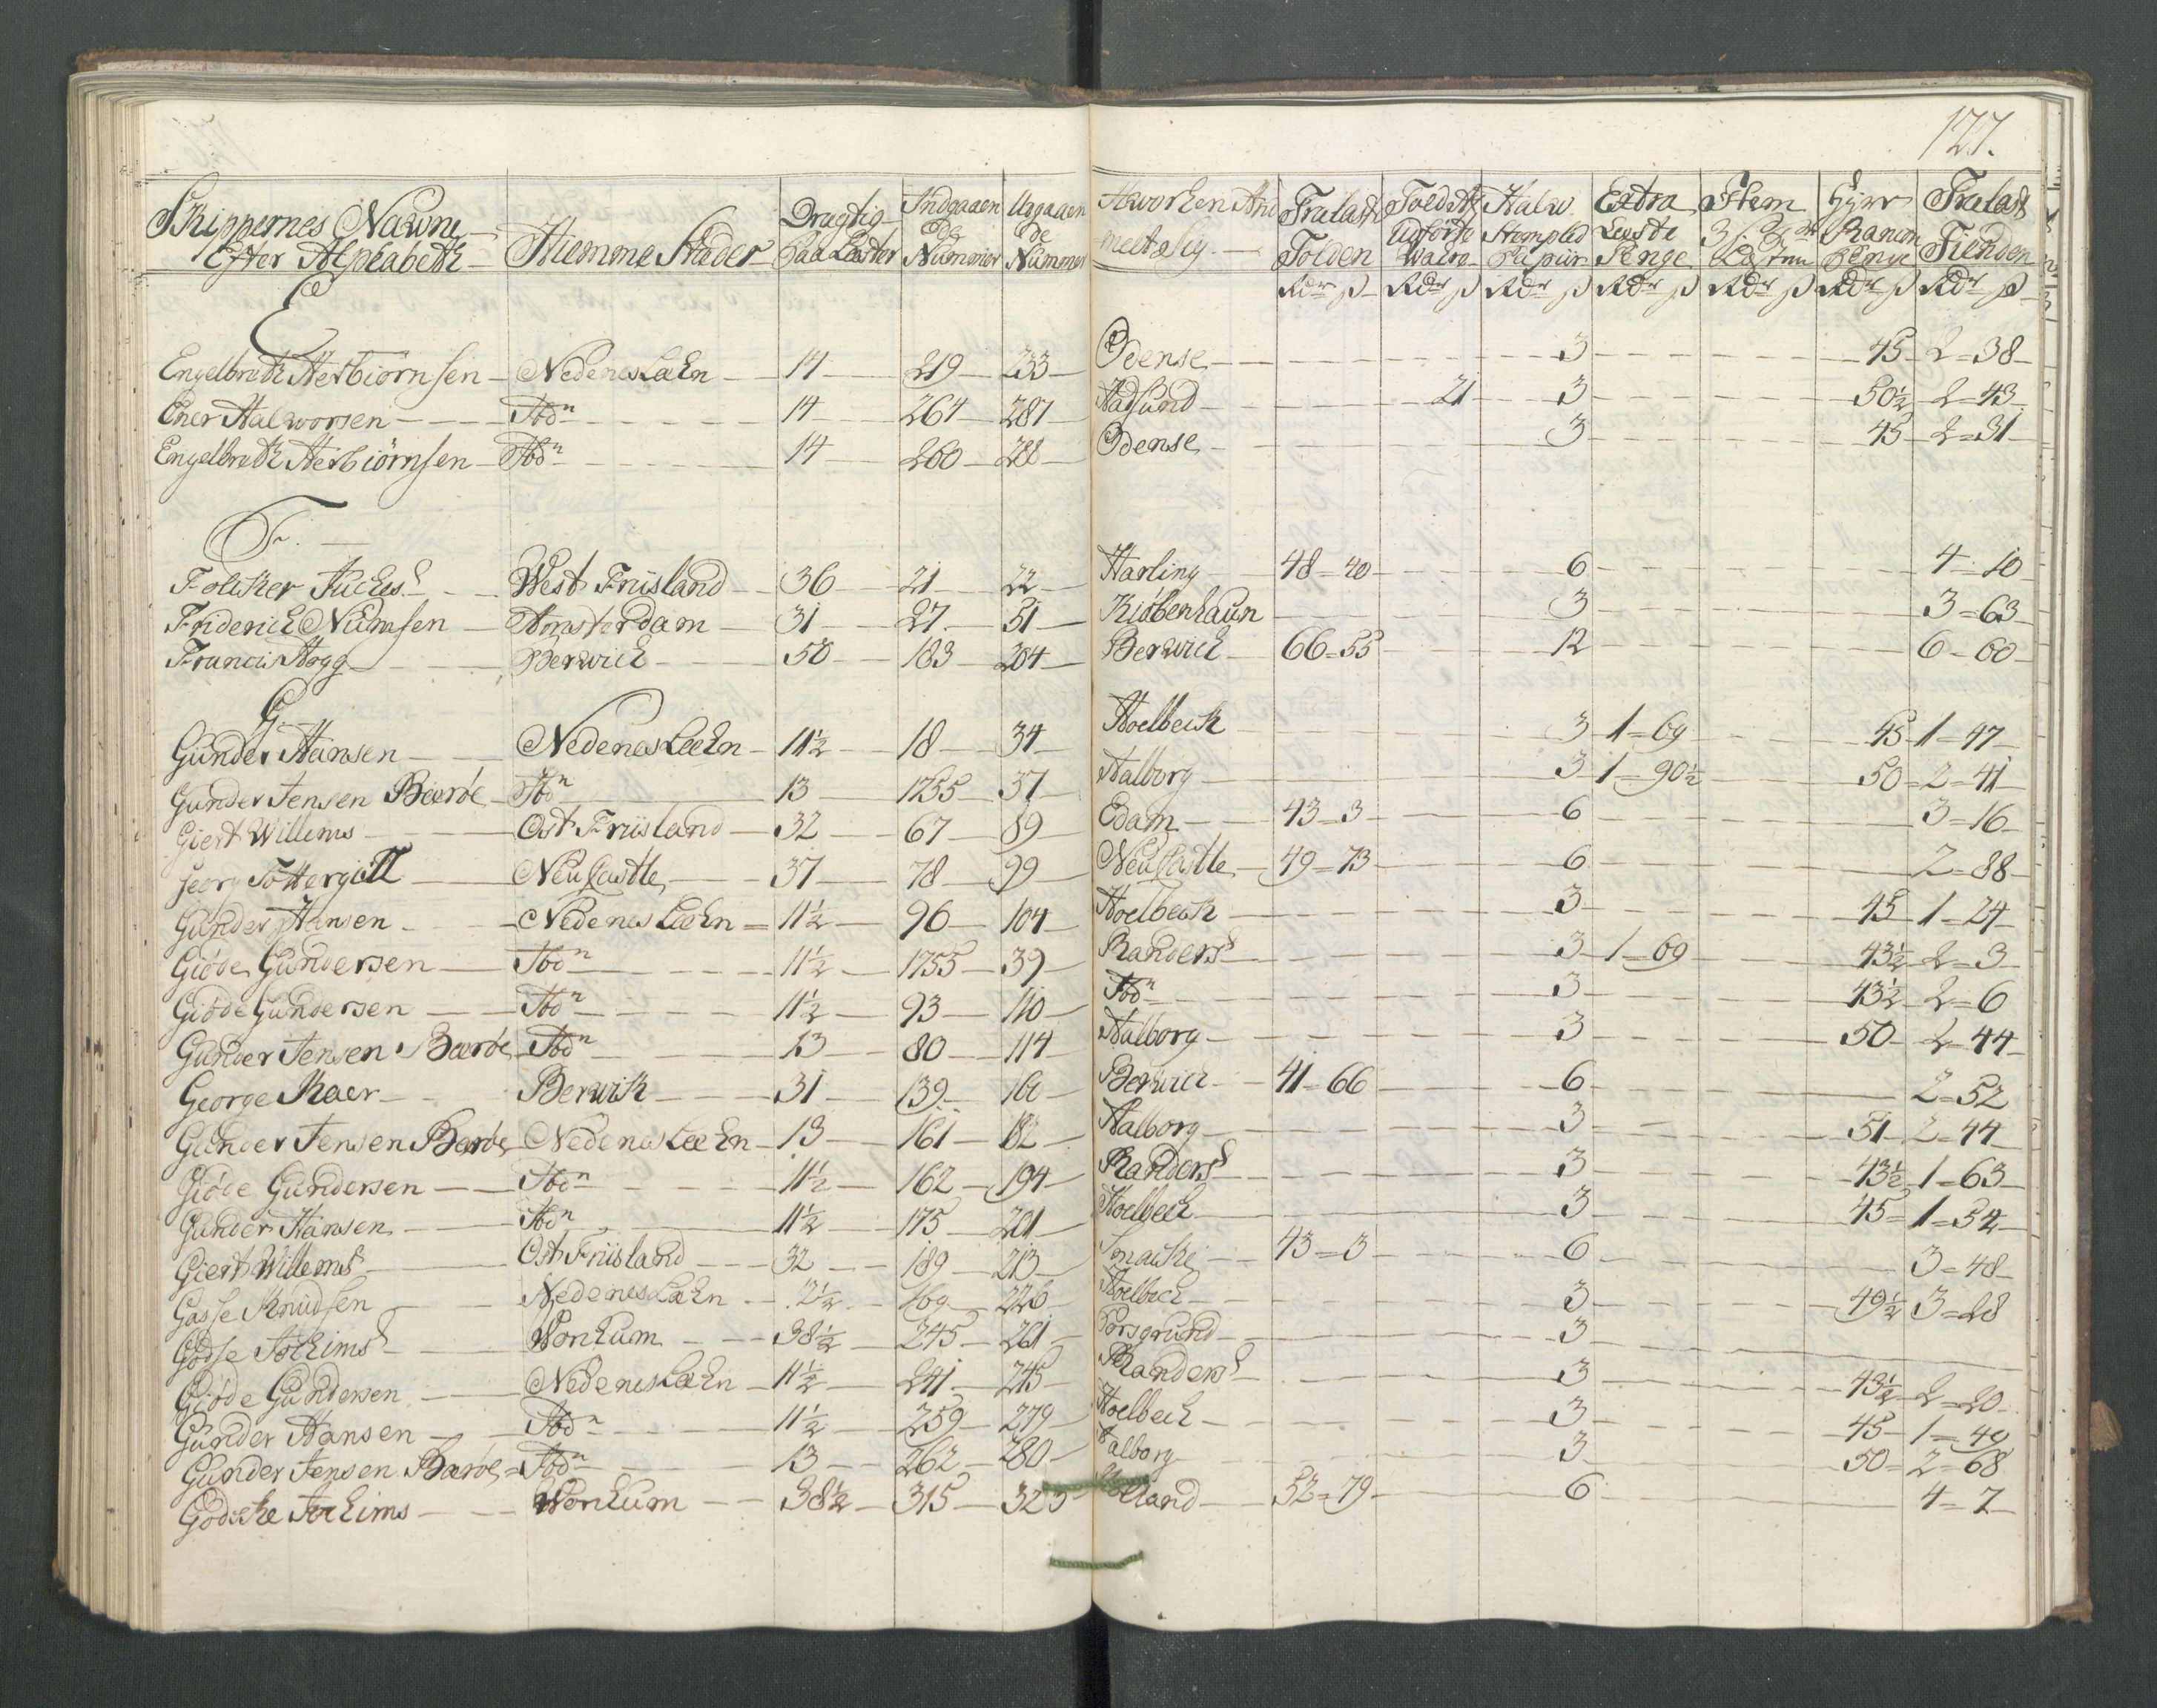 127.
Skippernes Nawne Efter Alphabeth | Hiemme Stæder | Drægtig Paa Læster | Indgaaende Nummer | Udgaaende Nummer | Hworhen And meldt sig | Tralast Tolden Rdr ß | Told Af Udførte Wahre Rdr ß | Halw Stempled Papiir Rdr ß | Extra Læste Penge Rdr ß | Item Rdr ß | Rdr ß | Tralast Tienden Rdr ß
E
Engelbreth Herbiørnsen — Nedenes Læhn — 14 — 219 — 233 — Odense — 3 — 45 — 2 = 38
Ener Halworsen — Ibdn — 14 — 264 — 287 — Hadsund — 21 — 3 — 50½ — 2 = 43
Engelbreth Herbiørnsen — Ibdn — 14 — 260 — 288 — Odense — 3 — 45 — 2 = 31
F.
Folcker — West Friisland — 36 — 21 — 22 — Harling — 48 = 40 — 6 — 4 = 10
Friderich — Amsterdam — 31 — 27 — 51 — Kiøbenhaun — 3 — 3 = 63
Francis Hogg — Berwich — 50 — 183 — 204 — Berwich — 66 = 55 — 12 — 6 = 60
G.
Gunder Hansen — Nedenes Læhn — 11½ — 18 — 34 — Hoelbeck — 3 — 1 = 69 — 45 — 1 = 47
Gunder Jensen Boerøe — Ibdn — 13 — 1755 — 37 — Aalborg — 3 — 1 = 90½ — 50 = 2 = 41
Giert Willems — Ost Friisland — 32 — 67 — 89 — Edam — 43 = 3 — 6 — 3 = 16
Georg Fothergill — NeuCastle — 37 — 78 — 99 — NeuCastle — 49 = 73 — 6 — 2 = 88
Gunder Hansen — Nedenes Læhn = 11½ — 96 — 104 — Hoelbeck — 3 — 45 — 1 = 24
Giøde Gundersen — Ibdn — 11½ — 1755 — 39 — Randers — 3 — 1 = 69 — 43½ — 2 = 3
Giøde Gundersen — Ibdn — 11½ — 93 — 110 — Ibdn — 3 — 43½ — 2 = 6
Gunder Jensen Boerøe — Ibdn — 13 — 80 — 114 — Aalborg — 3 — 50 — 2 = 44
George Kaer — Berwick — 31 — 139 — 160 — Berwich — 41 = 66 — 6 — 2 = 52
Gunder Jensen Boerøe — Nedenes Læhn — 13 — 161 — 182 — Aalborg — 3 — 51 — 2 = 44
Giøde Gundersen — Ibdn — 11½ — 162 — 194 — Randers — 3 — 43½ — 1 = 63
Gunder Hansen — Ibdn — 11½ — 175 — 201 — Hoelbech — 3 — 45 = 1 = 54
Giert Willems — Ost Friisland — 32 — 189 — 213 — 43 = 3 — 6 — 3 = 48
Gasse Knudsen — Nedenes Læhn — 12½ — 169 — 226 — Hoelbech — 3 — 49½ — 3 = 28
Gødse Jochims — Worckum — 38½ — 245 — 261 — Porsgrund — 3
Giøde Gundersen — Nedenes Læhn — 11½ — 241 — 245 — Randers — 3 — 43½ — 2 = 20
Gunder Hansen — Ibdn — 11½ — 259 — 279 — Hoelbech — 3 — 45 — 1 = 49
Gunder Jensen Boerøe = Ibdn — 13 — 262 — 280 — Aalborg — 3 — 50 = 2 = 68
Gødicke Jochims — Worckum — 38½ — 315 — 52 = 79 — 6 — 4 = 7